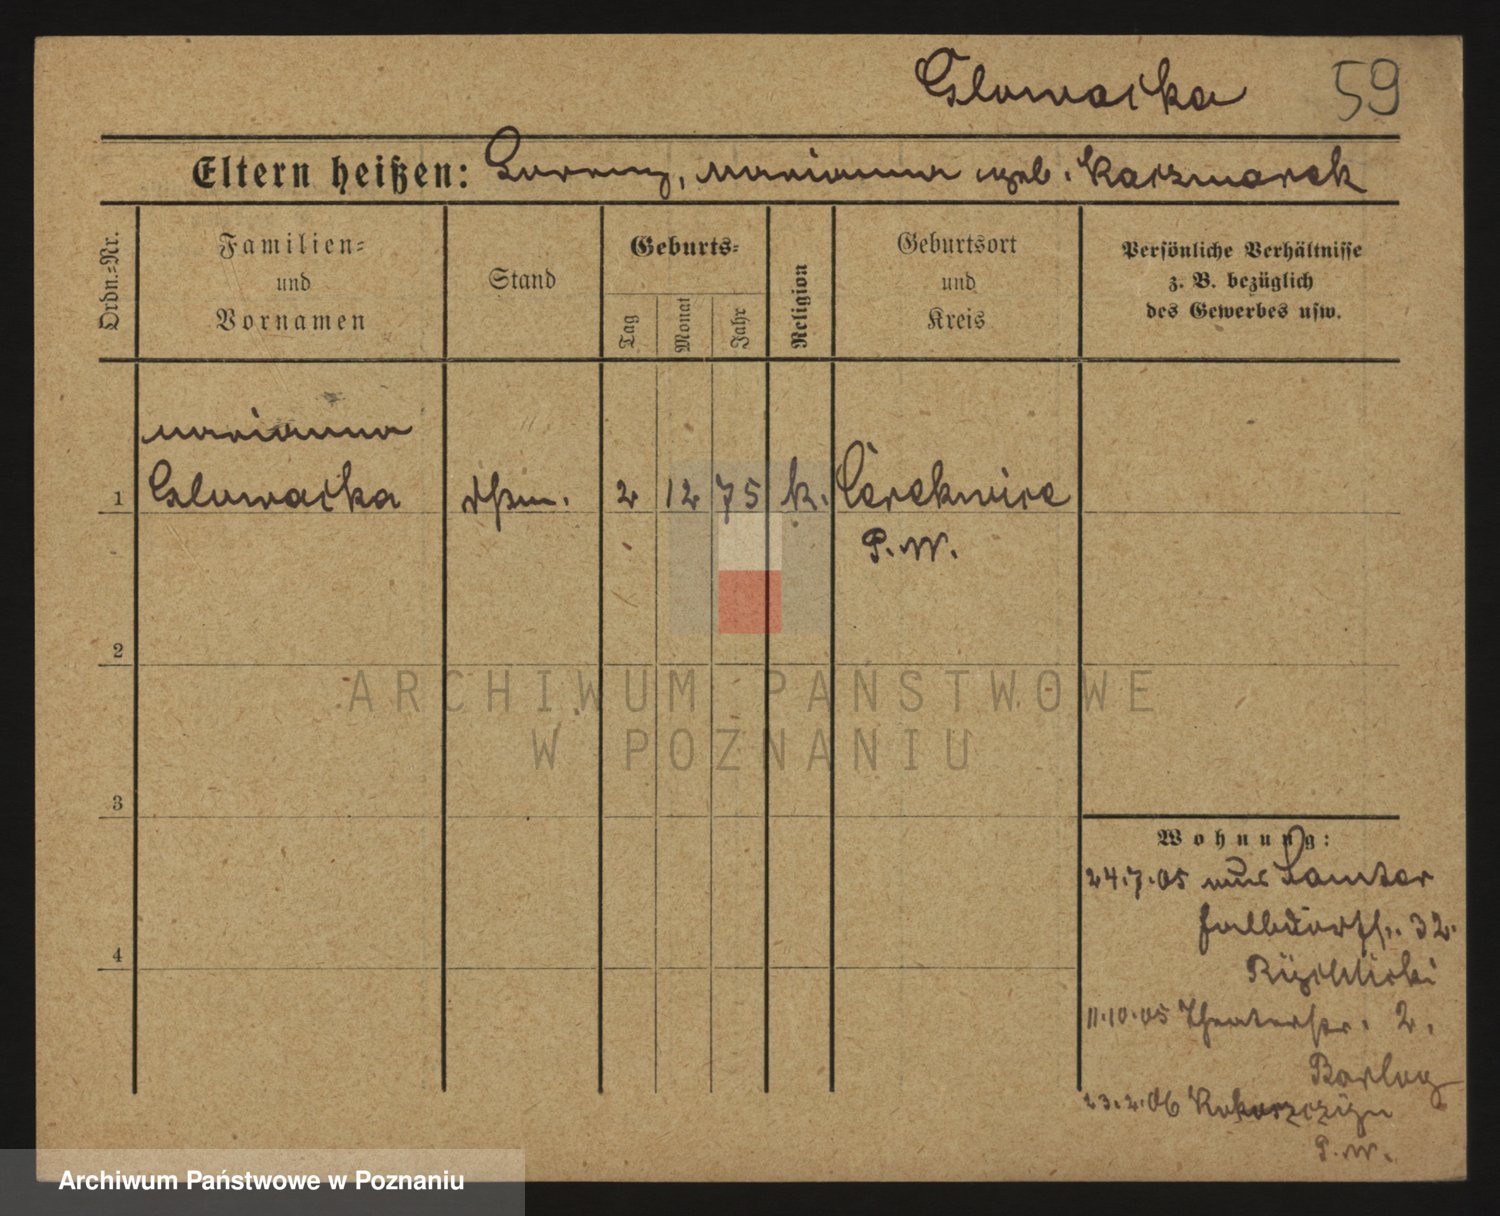 Glowacka 59
Eltern heißen: Lorenz, Marianna geb. Kaczmarek
Ordn.=Nr.
Familien=
und
Vornamen
Stand
Geburts=
Tag
Monat
Jahr
Religion
Geburtsort
und
Kreis
Persönliche Verhältnisse
z. B. bezüglich
des Gewerbes usw.
Marianna
1 Glowacka 2 12 75 k. Cerekwice
P. W.
2
3
4
Wohnung:
24.7.05 aus Samter
32.
11.10.05 Theaterstr. 2.
Barlog
23.2.06 Kokorzczyn
P. W.
ARCHIWUM PAŃSTWOWE
W POZNANIU
Archiwum Państwowe w Poznaniu